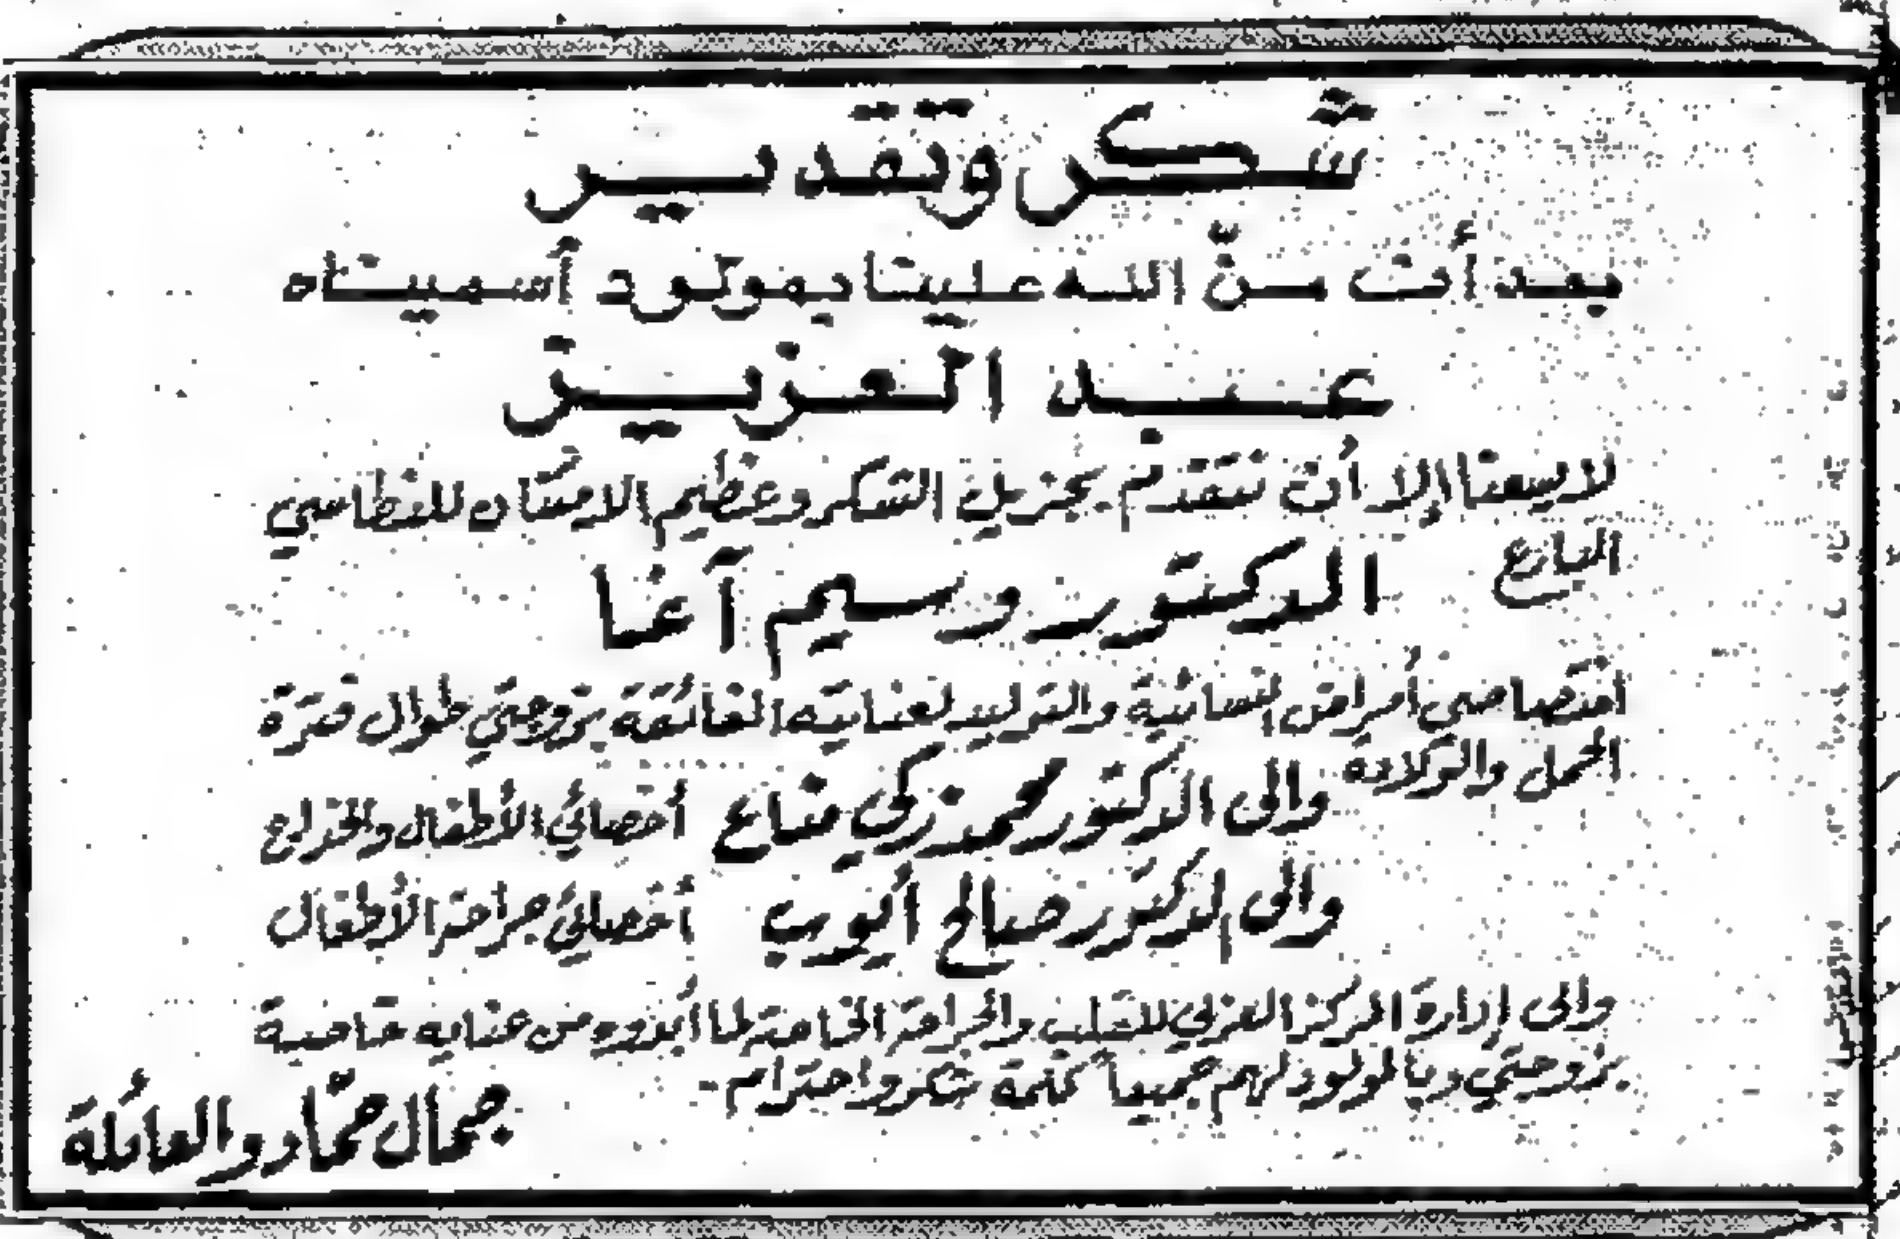 شكر وتقدير
بعد أن منّ الله علينا بمولود أسميناه
عبد العزيز
لا يسعنا إلا أن نتقدم بجزيل الشكر وعظيم الامتنان للنطاسي
البارع
الدكتور وسيم آغا
اختصاصي أمراض النسائية والتوليد لعنايته الفائقة بزوجتي طوال فترة
الحمل والولادة
والى الدكتور محمد زكي مناع أخصائي الأطفال والخداج
والى الدكتور صالح أيوب أخصائي جراحة الأطفال
والى إدارة المركز العربي للقلب والجراحة الخاصة لما أبدوه من عناية خاصة
بزوجتي وبالمولود لهم جميعاً كلمة شكر واحترام.
جمال حمّاد والعائلة